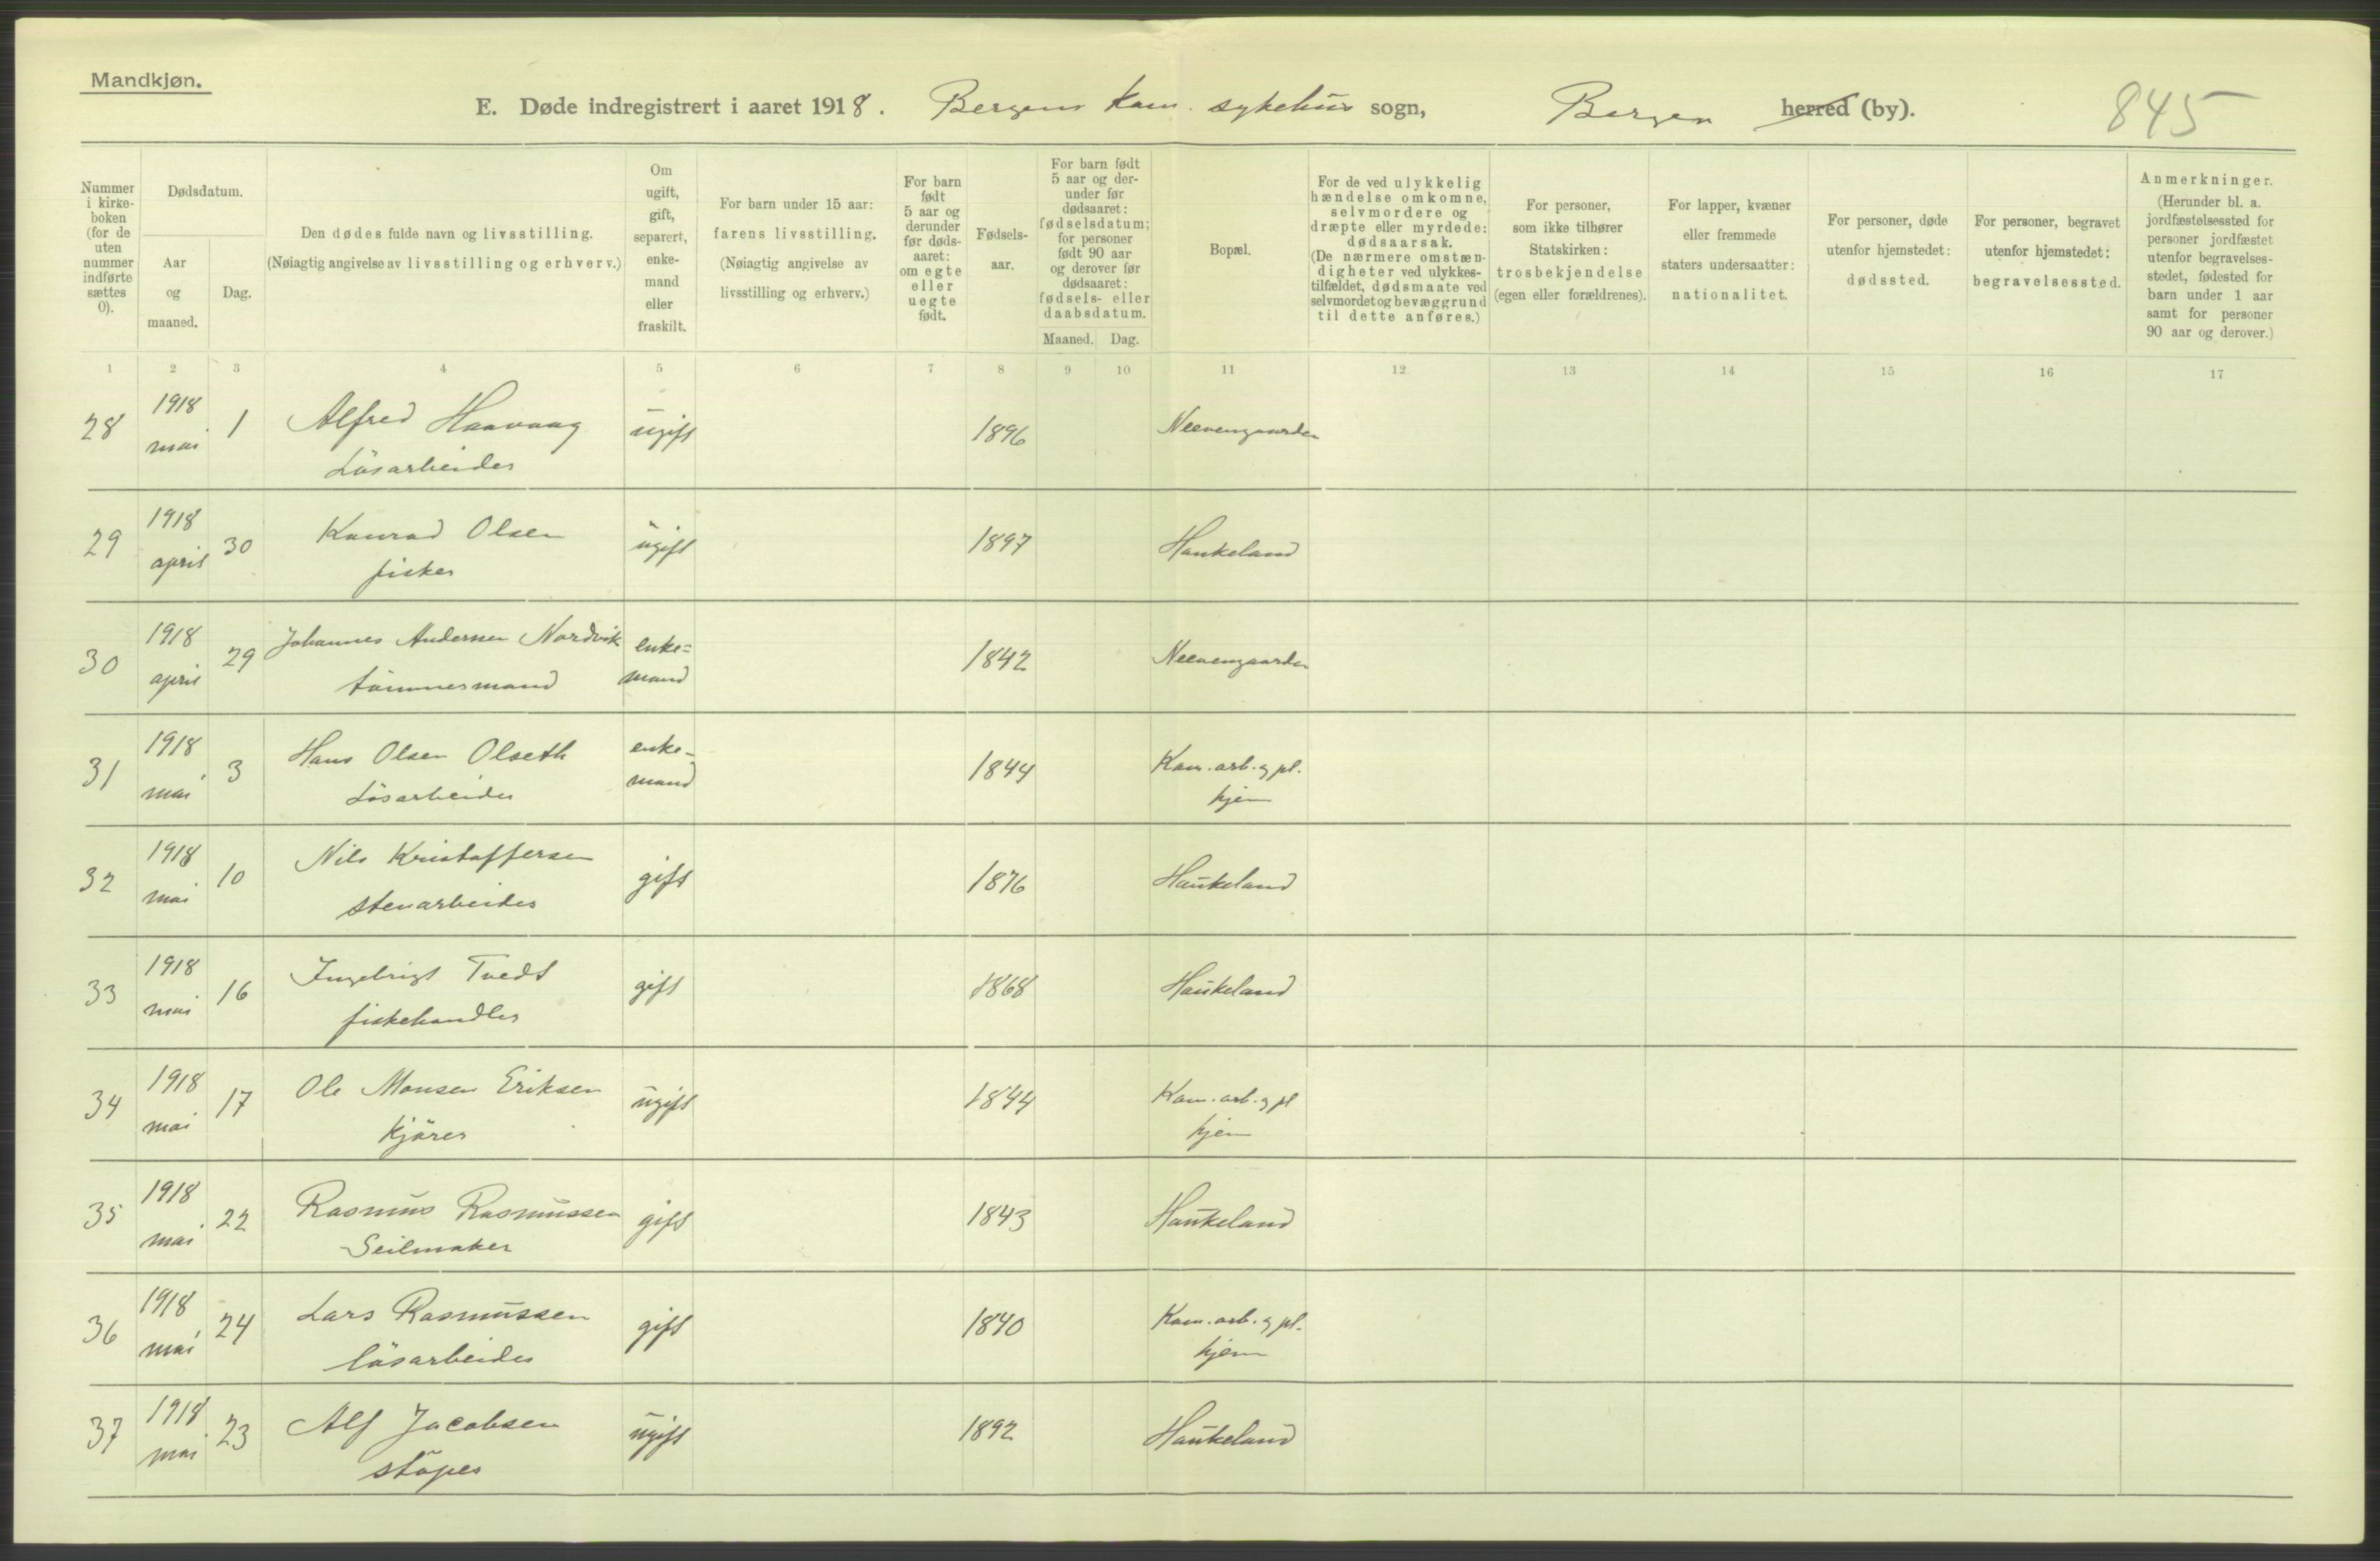 Mandkjøn.
E. Døde indregistrert i aaret 1918. Bergens kom. sykehus sogn, Bergen herred (by). 845
Nummer i kirke-boken (for de uten nummer indførte sættes 0).
Dødsdatum.
Aar og maaned.
Dag.
Den dødes fulde navn og livsstilling.
(Nøiagtig angivelse av livsstilling og erhverv.)
Om ugift, gift, separert, enke-mand eller fraskilt.
For barn under 15 aar:
farens livsstilling.
(Nøiagtig angivelse av livsstilling og erhverv.)
For barn født 5 aar og derunder før døds-aaret: om egte eller uegte født.
Fødsels-aar.
For barn født 5 aar og der-under før dødsaaret: fødselsdatum; for personer født 90 aar og derover før dødsaaret: fødsels- eller daabsdatum.
Maaned. Dag.
Bopæl.
For de ved ulykkelig hændelse omkomne, selvmordere og dræpte eller myrdede: dødsaarsak. (De nærmere omstæn-digheter ved ulykkes-tilfældet, dødsmaate ved selvmordet og bevæggrund til dette anføres.)
For personer, som ikke tilhører Statskirken: trosbekjendelse (egen eller forældrenes).
For lapper, kvæner eller fremmede staters undersaatter: nationalitet.
For personer, døde utenfor hjemstedet: dødssted.
For personer, begravet utenfor hjemstedet: begravelsessted.
Anmerkninger. (Herunder bl. a. jordfæstelsessted for personer jordfæstet utenfor begravelses-stedet, fødested for barn under 1 aar samt for personer 90 aar og derover.)
1 2 3 4 5 6 7 8 9 10 11 12 13 14 15 16 17
28 1918 mai 1 Alfred Haavaag ugift 1896 Neevengaarden
Løsarbeider
29 1918 april 30 Konrad Olsen ugift 1897 Haukeland
fisker
30 1918 april 29 Johannes Andersen Nordvik enke=mand 1842 Neevengaarden
tømmermand
31 1918 mai 3 Hans Olsen Olseth enke-mand 1844 Kom. arb. og pl. hjem
Løsarbeider
32 1918 mai 10 Nils Kristoffersen gift 1876 Haukeland
stenarbeider
33 1918 mai 16 Ingebrigt Tvedt gift 1868 Haukeland
fiskehandler
34 1918 mai 17 Ole Monsen Eriksen ugift 1844 Kom. arb. og pl hjem
kjører
35 1918 mai 22 Rasmus Rasmussen gift 1843 Haukeland
Seilmaker
36 1918 mai 24 Lars Rasmussen gift 1840 Kom. arb. og pl. hjem
løsarbeider
37 1918 mai 23 Alf Jacobsen ugift 1892 Haukeland
støper